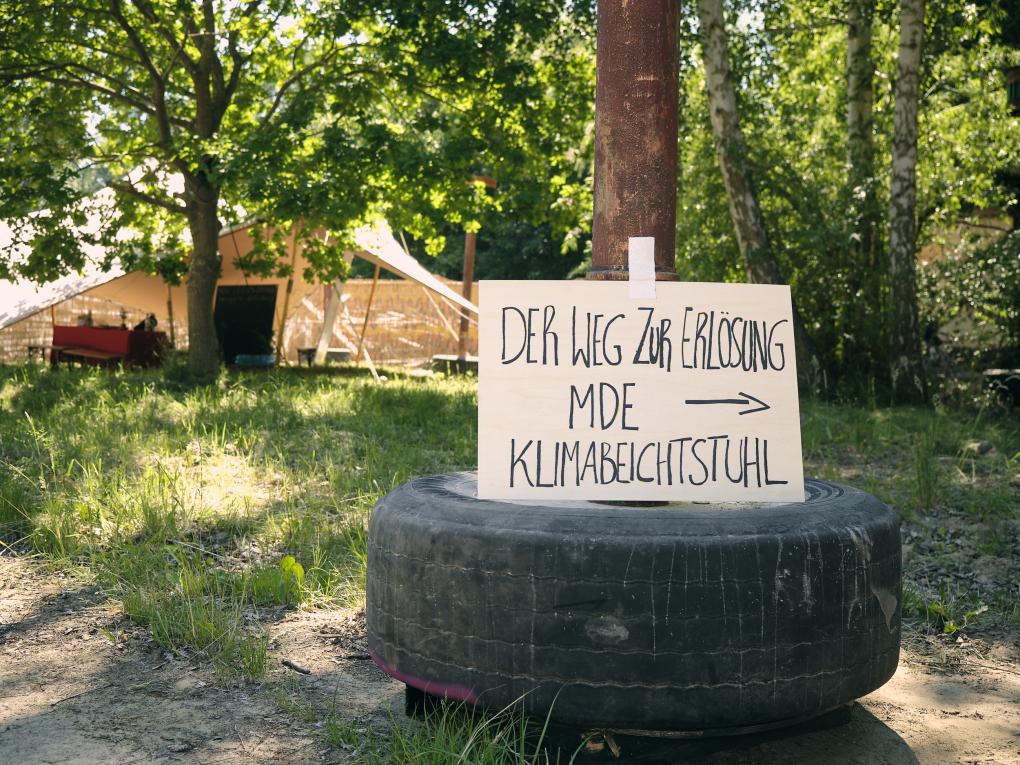 DER WEG ZUR ERLÖSUNG
MDE →
KLIMABEICHTSTUHL